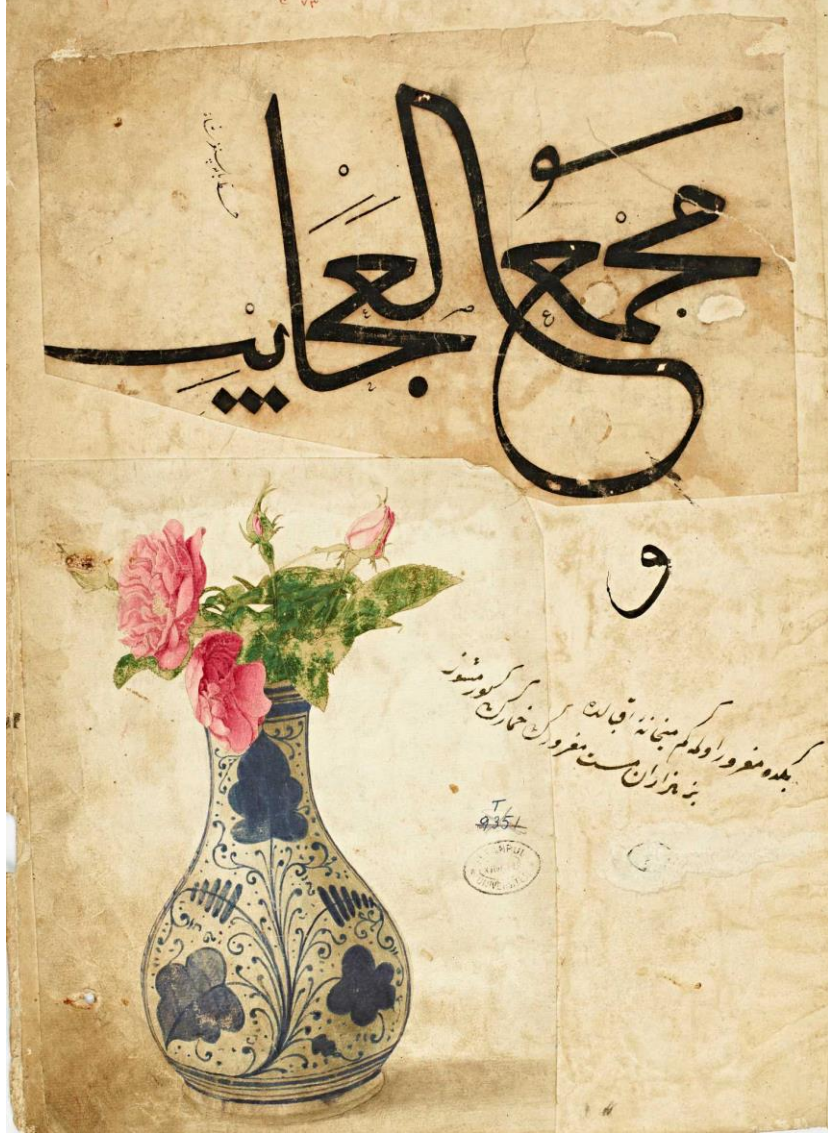 مجمع العجايب
و
پكده مغرور اولمه كم ميخانه اقبالده
بز هزاران مست مغرورك خمارك كورمشوز
T
9351